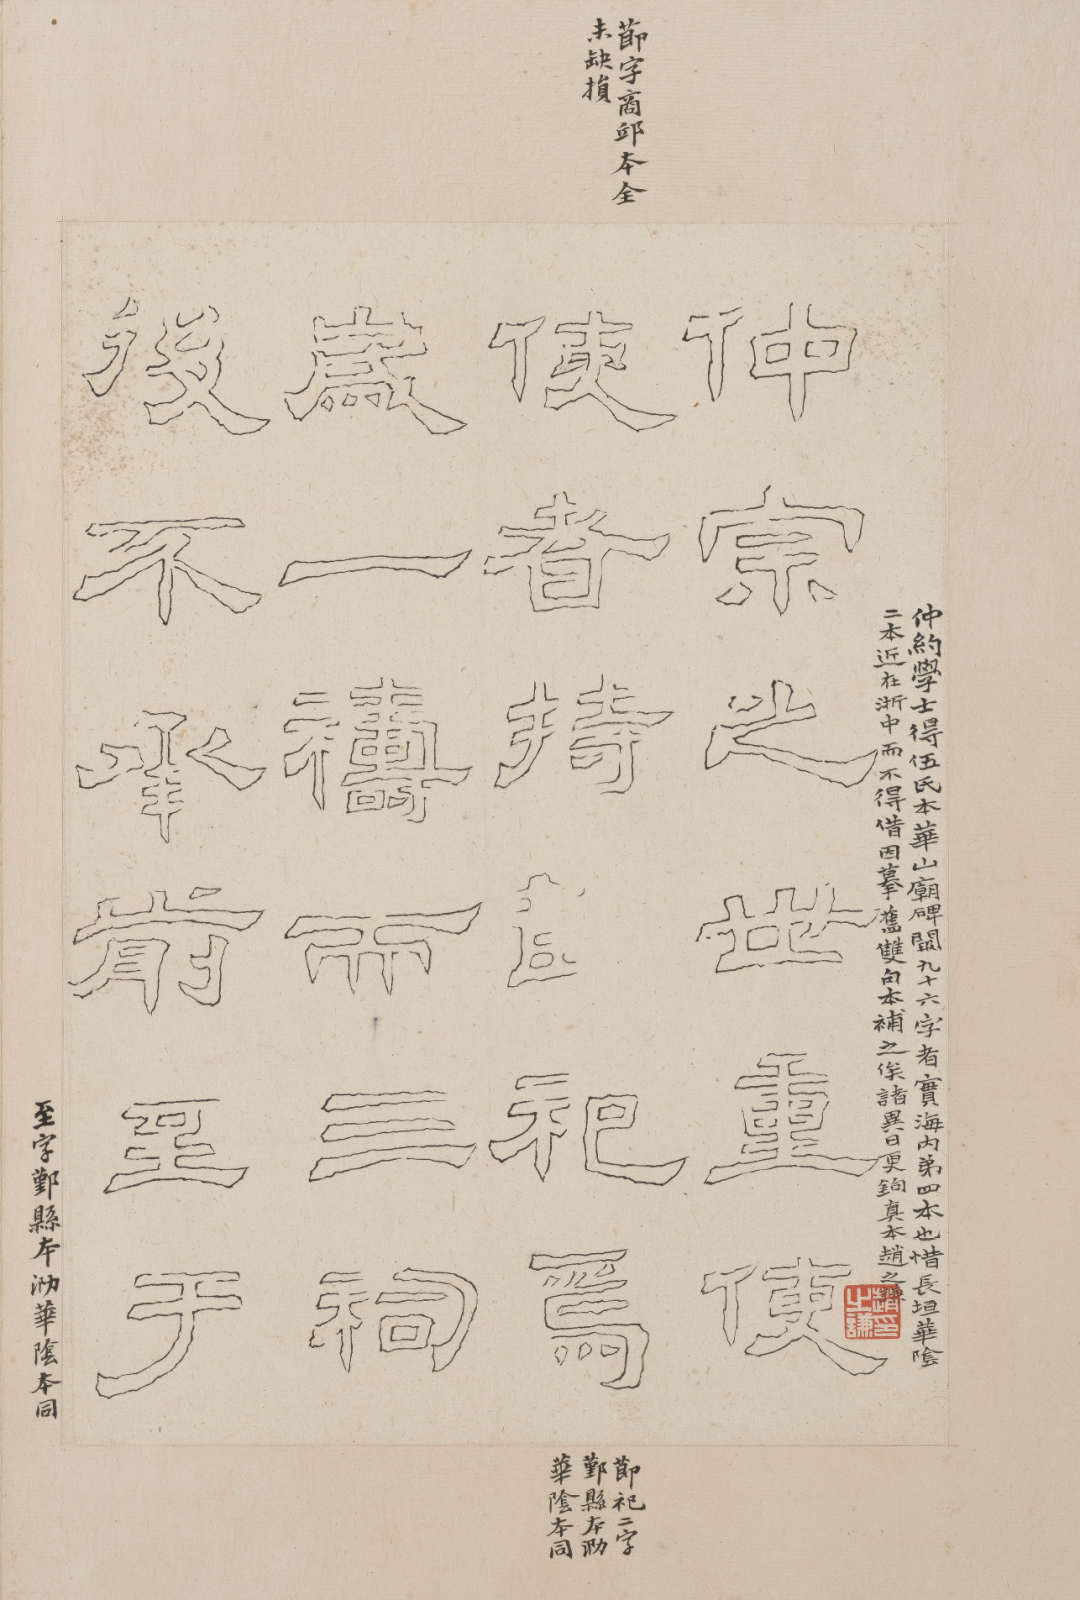 節字商邱本全
未缺損
仲約學士得伍氏本華山廟碑闕九十六字者實海内弟四本也惜長垣華陰
二本近在浙中而不得借因摹舊雙句本補之俟諸異日更鉤真本趙之謙
趙印之謙
仲宗之世重使
使者持節祀焉
歲一禱而三祠
後不承前至于
節祀二字
鄞縣本泐
華陰本同
至字鄞縣本泐華陰本同